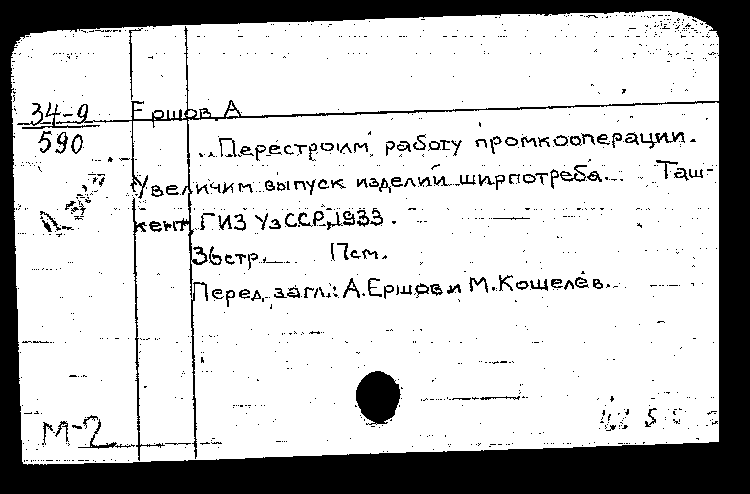 34-9
590
Ершов, А
...Перестроим работу промкооперации.
Увеличим выпуск изделий ширпотреба... Таш-
кент, ГИЗ УзССР, 1933.
36стр. 17см.
Перед загл.: А.Ершов и М.Кощелев.
М-2